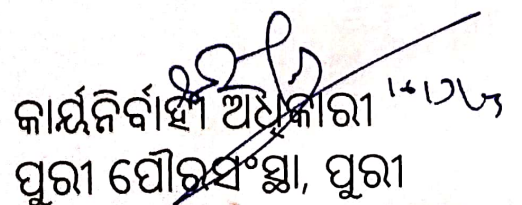 କାର୍ଯ୍ୟନିର୍ବାହୀ ଅଧିକାରୀ
ପୁରୀ ପୌରସଂସ୍ଥା, ପୁରୀ